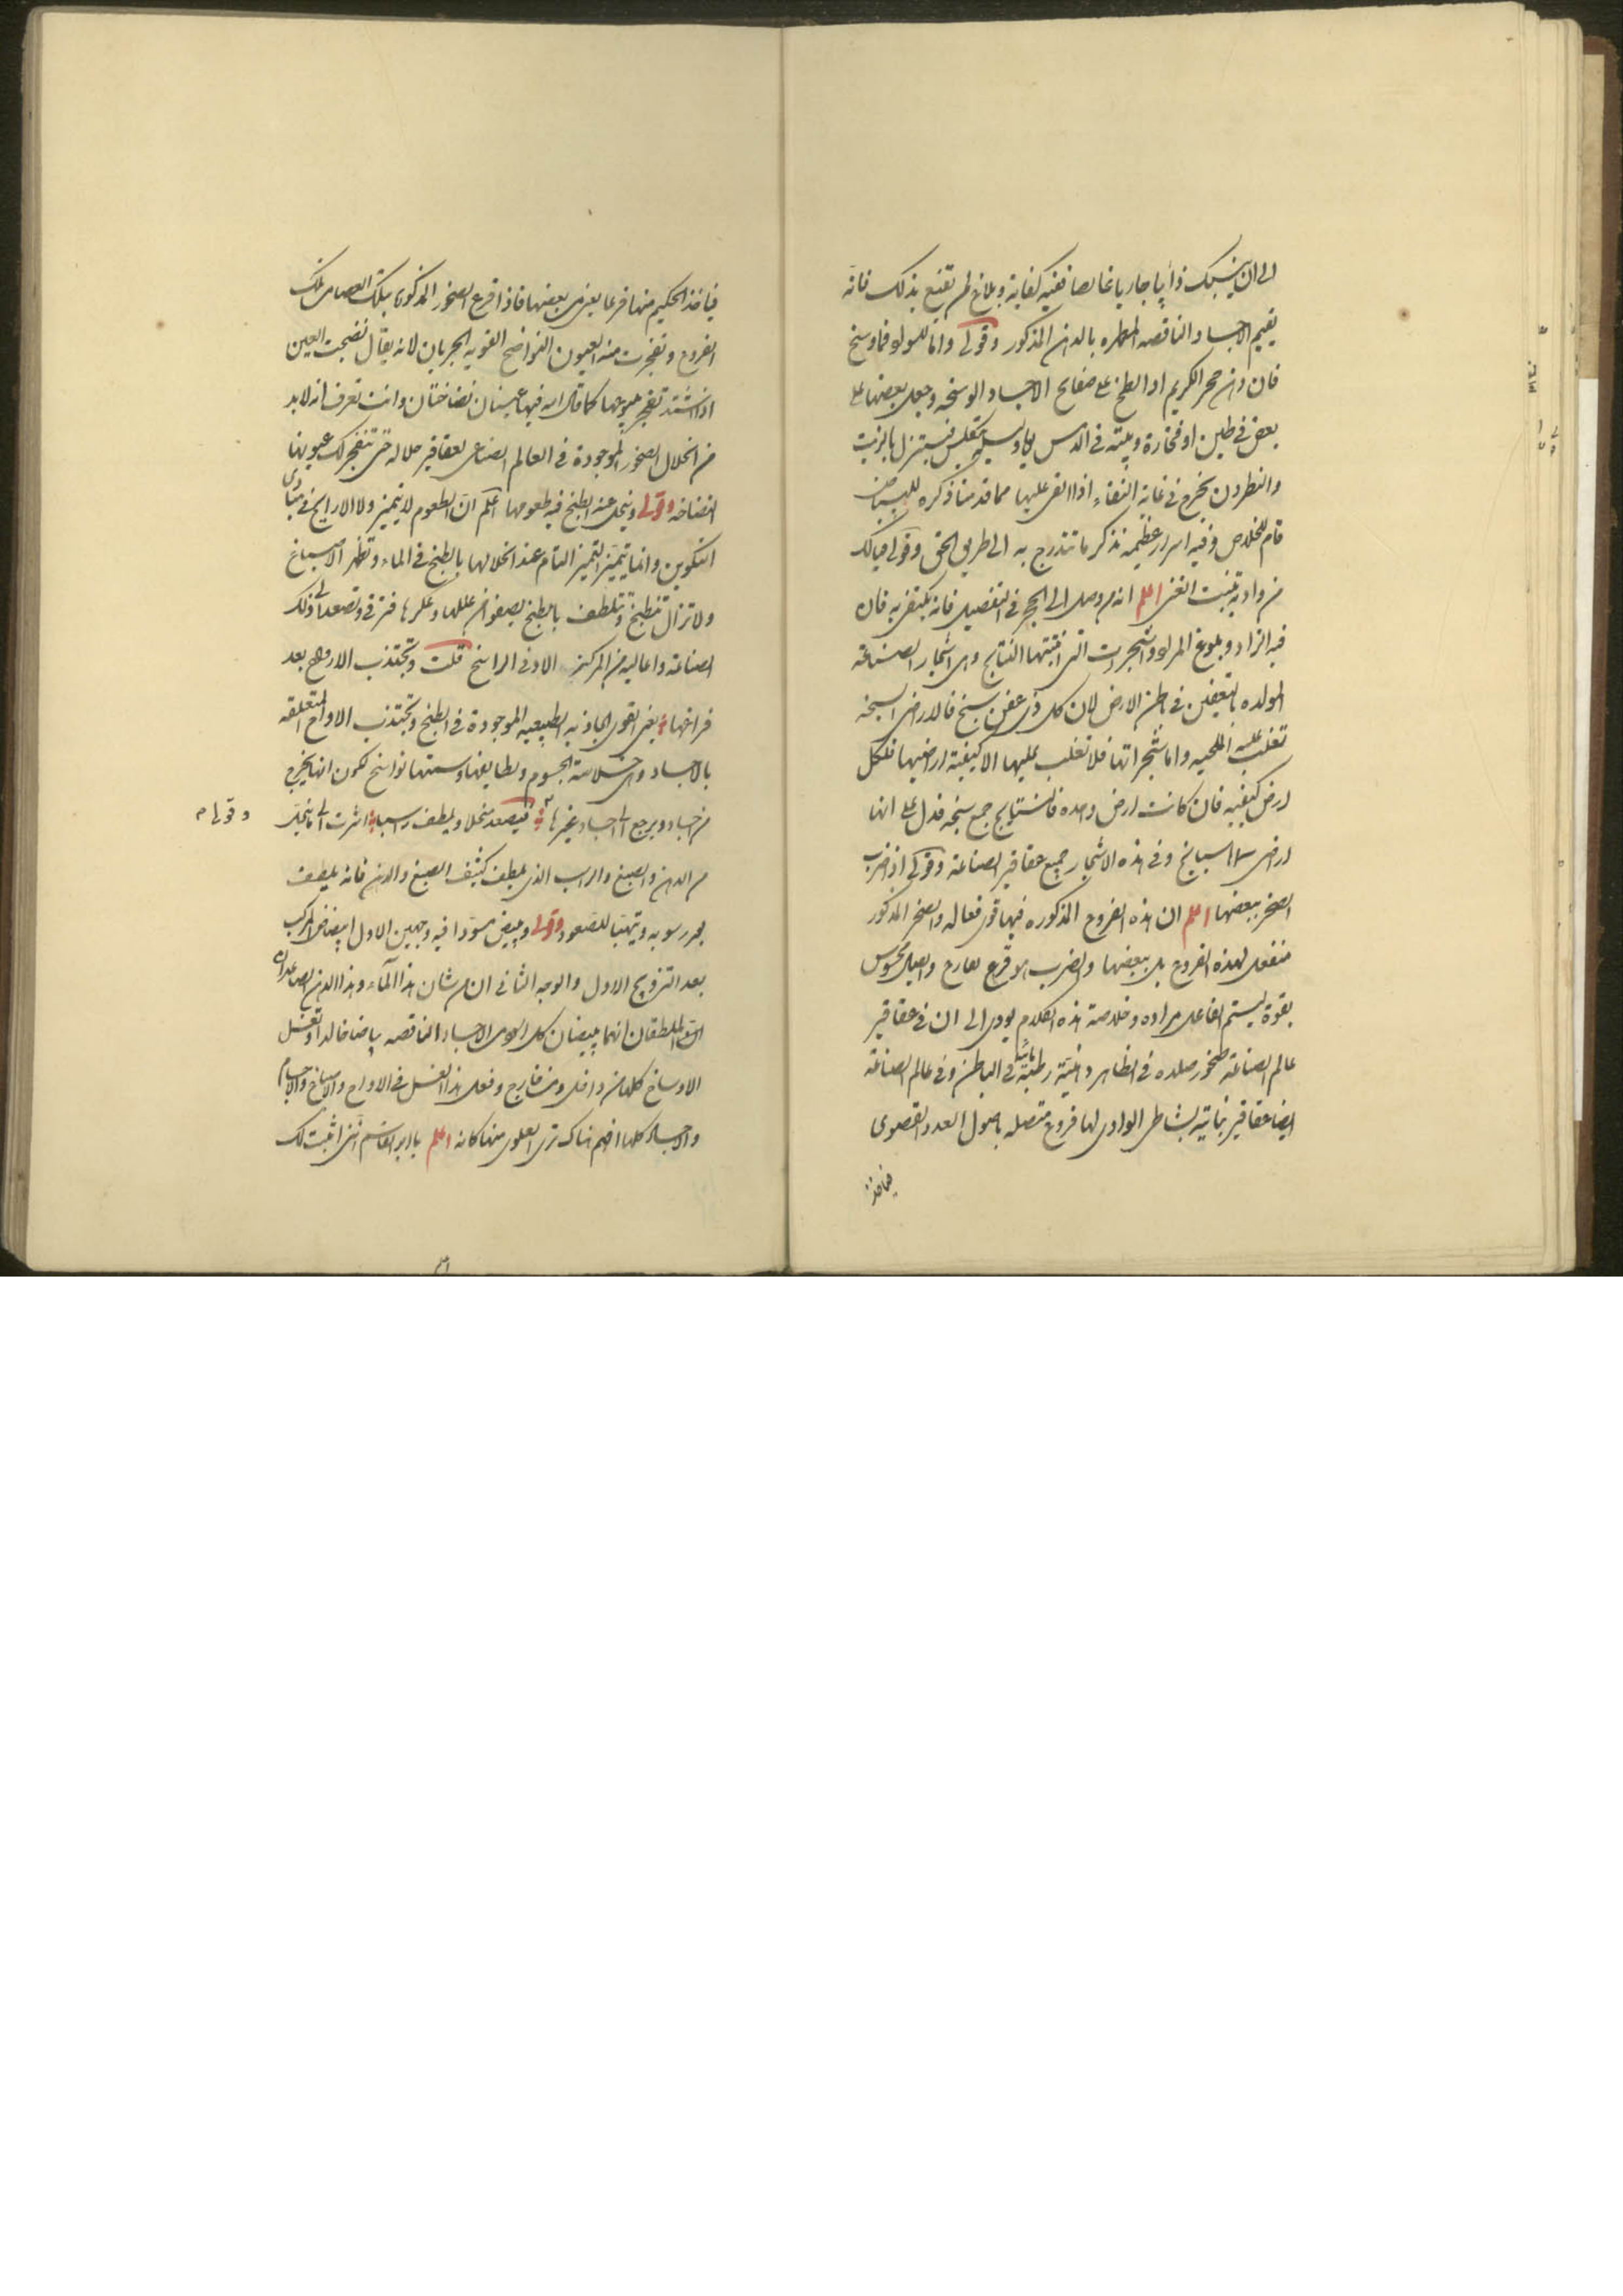 الى ان ينسبك ذايبا جاريا غايصا ففيه كفاية وبلاغ لم يقنع بذلك فانه
يقيم الاجساد الناقصه المطهره بالدهن المذكور وقولى واما للمولو فماوسخ
فان دهن حجر الكريم اذا لطخ على صفايح الاجساد الوسخه وجعل بعضها على
بعض فى طين او فخارة وبيته فى الدمس يتكلس فيستنزل بالزيت
والنطرون يخرج فى غاية النقاء اذا القى عليها مما قدمنا ذكره للبياض
قام للخلاص وفيه اسرار عظيمه نذكر ما تتدرج به الى طريق الحق وقولى فيالك
من واد به ينبت الغنى اعلم انه من وصل الى الحجر فى التفصيل فانه يكتفى به فان
فيه الزاد وبلوغ المراد والشجرات التى انبتتها النتايج وهى اشجار الصناعة
المولده بالتعفين فى باطن الارض لان كل ذى عفن سبخ فالارض السبخه
تغلب عليه الملحيه واما شجراتها فلا تغلب عليها الا كيفية اراضيها فلكل
ارض كيفيه فان كانت ارض وحده فالسبايخ جمع سبخه فدل على انها
ارض السبايخ وفى هذه الاشجار جميع عقاقير الصناعة وقولى اذا ضرب
الصخر ببعضها اعلم ان هذه الفروع المذكوره فيها قوى فعاله والصخر المذكور
منفعل لهذه الفروع بل ببعضها والضرب هو قرع بقارع واتصل محسوس
بقوة ليستم الفاعل مراده وخلاصة هذه الكلام يودى الى ان فى عقاقير
عالم الصناعة صخور صلده فى الظاهر ذائبة رطبة فى الباطن وفى عالم الصناعة
ايضا عقاقير نباتية بشاطى الوادى لها فروع متصله باصول العدد القصوى
فياخذ
فياخذ الحكيم منها فرعا يعنى بعضها فاذا قرع الصخور المذكورة بتلك العصا من تلك
الفروع وتفجرت منه العيون النواضح القويه الجريان لانه يقال نضخت العين
اذا اشتد تفجر ينبوعها كما قال الله فيهما عينان نضاختان وانت تعرف انه لابد
من انحلال الصخور الموجودة فى العالم الصناعى بعقاقير حلاله حتى تنفجر لك عيونها
النضاخه وقولى وينحل عند الطبخ فيه طعومها اعلم ان الطعوم لا تتميز ولا الارايح فى مبادى
التكوين وانما يتميز التميز التام عند انحلالها بالطبخ فى الماء وتظهر الاصباغ
ولا تزال تنطبخ وتتلطف بالطبخ بصفوها عن عللها وعكرها فترقى وتصعد الى فلك
الصناعة واعاليه من المركز الادنى الراسخ قلت وتجتذب الارواح بعد
فراخها يعنى القوى الجاذبه الطبيعيه الموجودة فى الطبخ وتجتذب الارواح المتعلقه
بالاجساد وهى خلاصة الجسوم ولطايفها وسميتها نواسخ لكون انها يخرج
من اجساد ويرجع الى اجساد غيرها فيصعد منحلا ويلطف راسبا اشرت الى ما ينحل
وقولى م
من الدهن والصبغ والراسب الذى يلطف كثيف الصبغ والدهن فانه يلطف
بعد رسوبه ويتهيا للصعود وقولى ويبيض مسودا فيه وجهين الاول ابيضاض المركب
بعد التزويج الاول والوجه الثانى ان من شان هذا الماء وهذا الدهن الصاعدان
الملطفان انهما يبيضان كل اسود من الاجساد الناقصه بياضا خالدا وتغسل
الاوساخ كلها من داخل ومن خارج وفعل هذا الغسل فى الارواح والاصباغ والاجسام
والاجساد كلها افهم هناك ترى العلوى منها كانه اعلم يا ابو القاسم اننى اثبت لك
اعلم